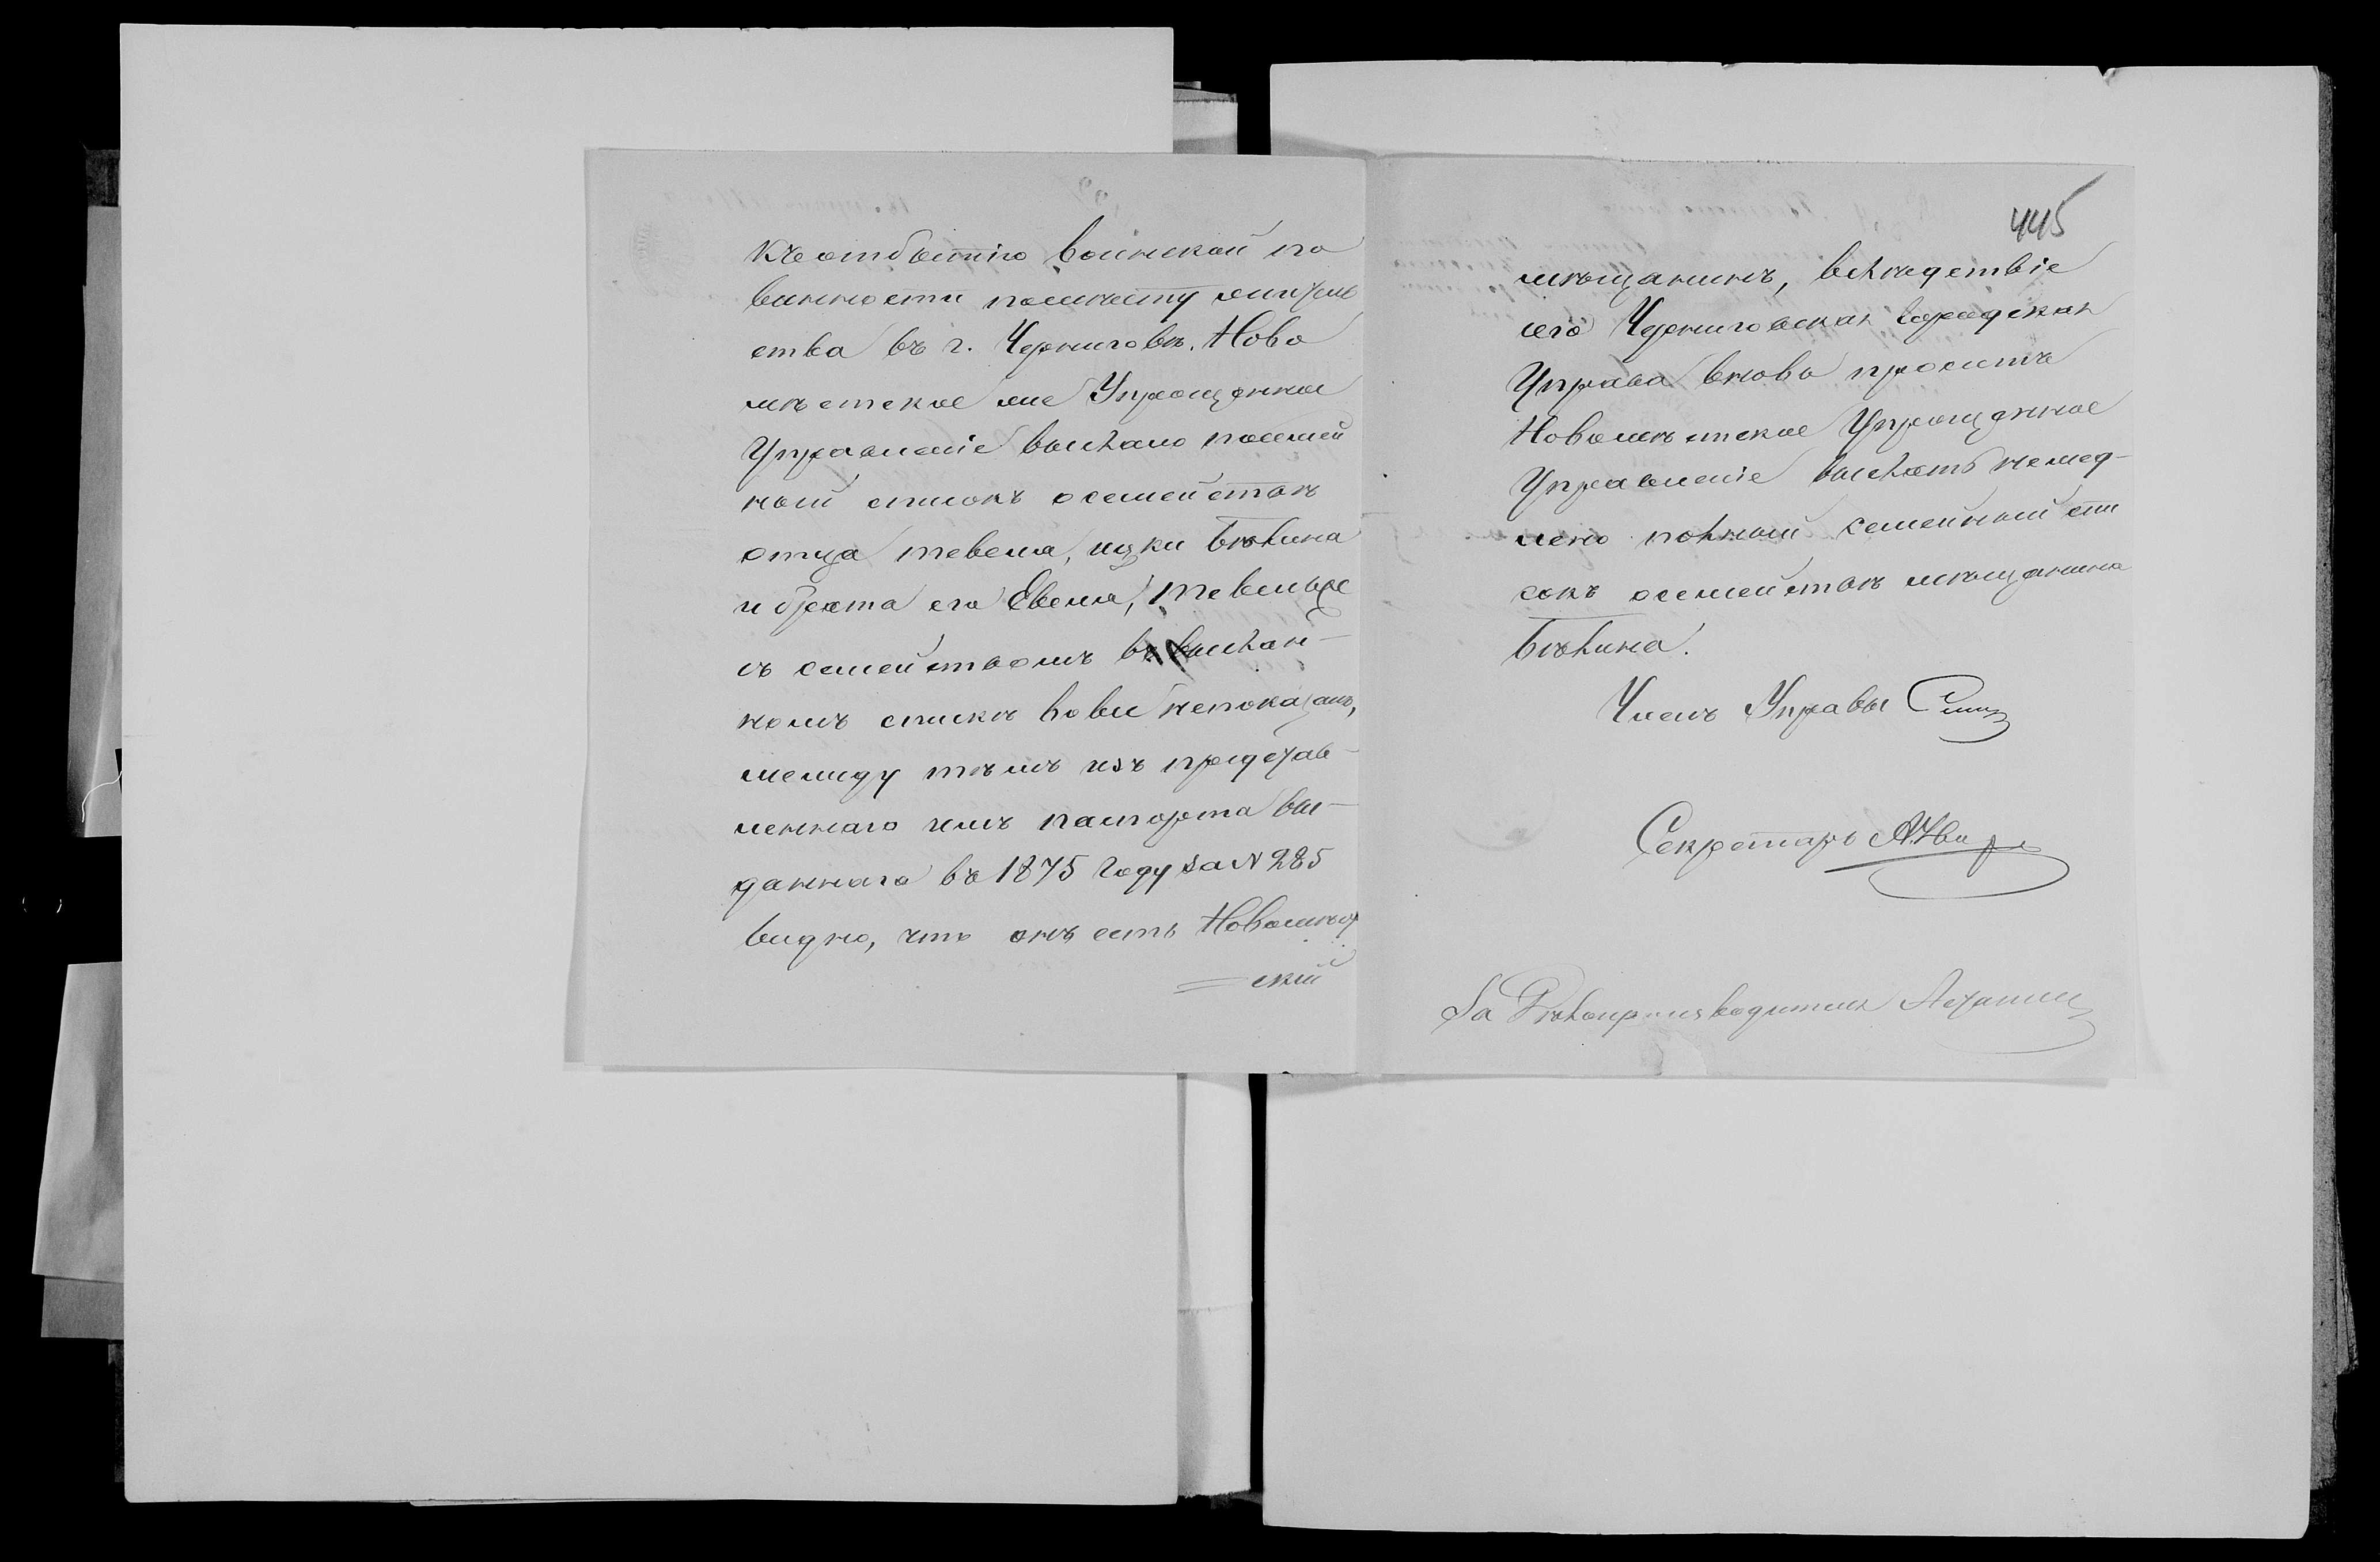 къ отбытію воинской по
винности по мѣсту житель
ства въ г. Черниговѣ. Ново
мѣстское же Упрощенное
Управленіе выслало посемей
ный списокъ о семействѣ
отца Тевеля, Ицки Бѣлина
и брата его Евеля, Тевель же
съ семействомъ въ выслан-
номъ спискѣ вовсе не показанъ,
между тѣмъ изъ представ-
леннаго имъ паспорта вы-
даннаго въ 1875 году за № 285
видно, что онъ есть Новомѣст
=скій
445
мѣщанинъ, вслѣдствіе
сего Черниговская Городская
Управа вновь проситъ
Новомѣстское Упрощенное
Управленіе выслать немед-
лено полный семейный спи
сокъ о семействѣ мѣщанина
Бѣлина.
Членъ Управы
Секретарь
За Дѣлопроизводителя